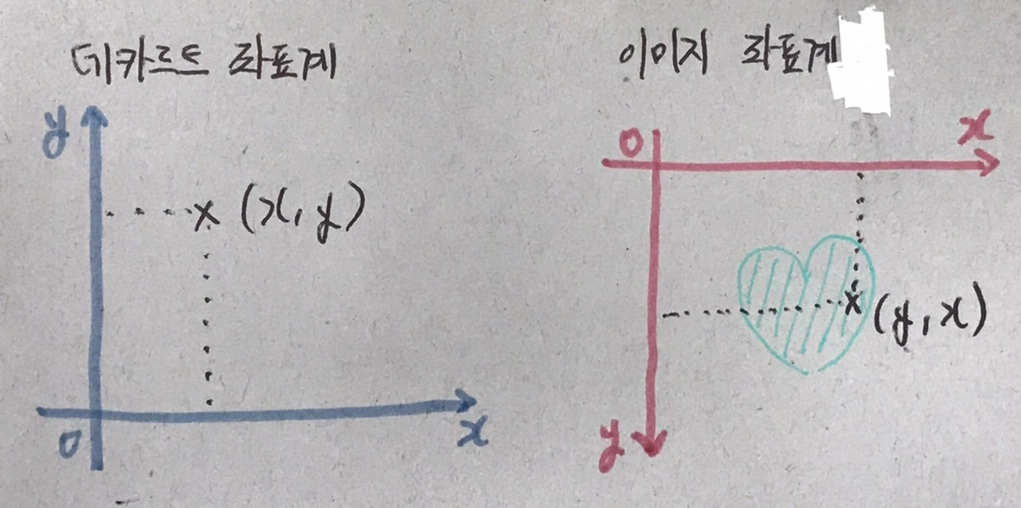 데카르트 좌표계
y
x (x, y)
0
x
이미지 좌표계
0
x
x (y, x)
y